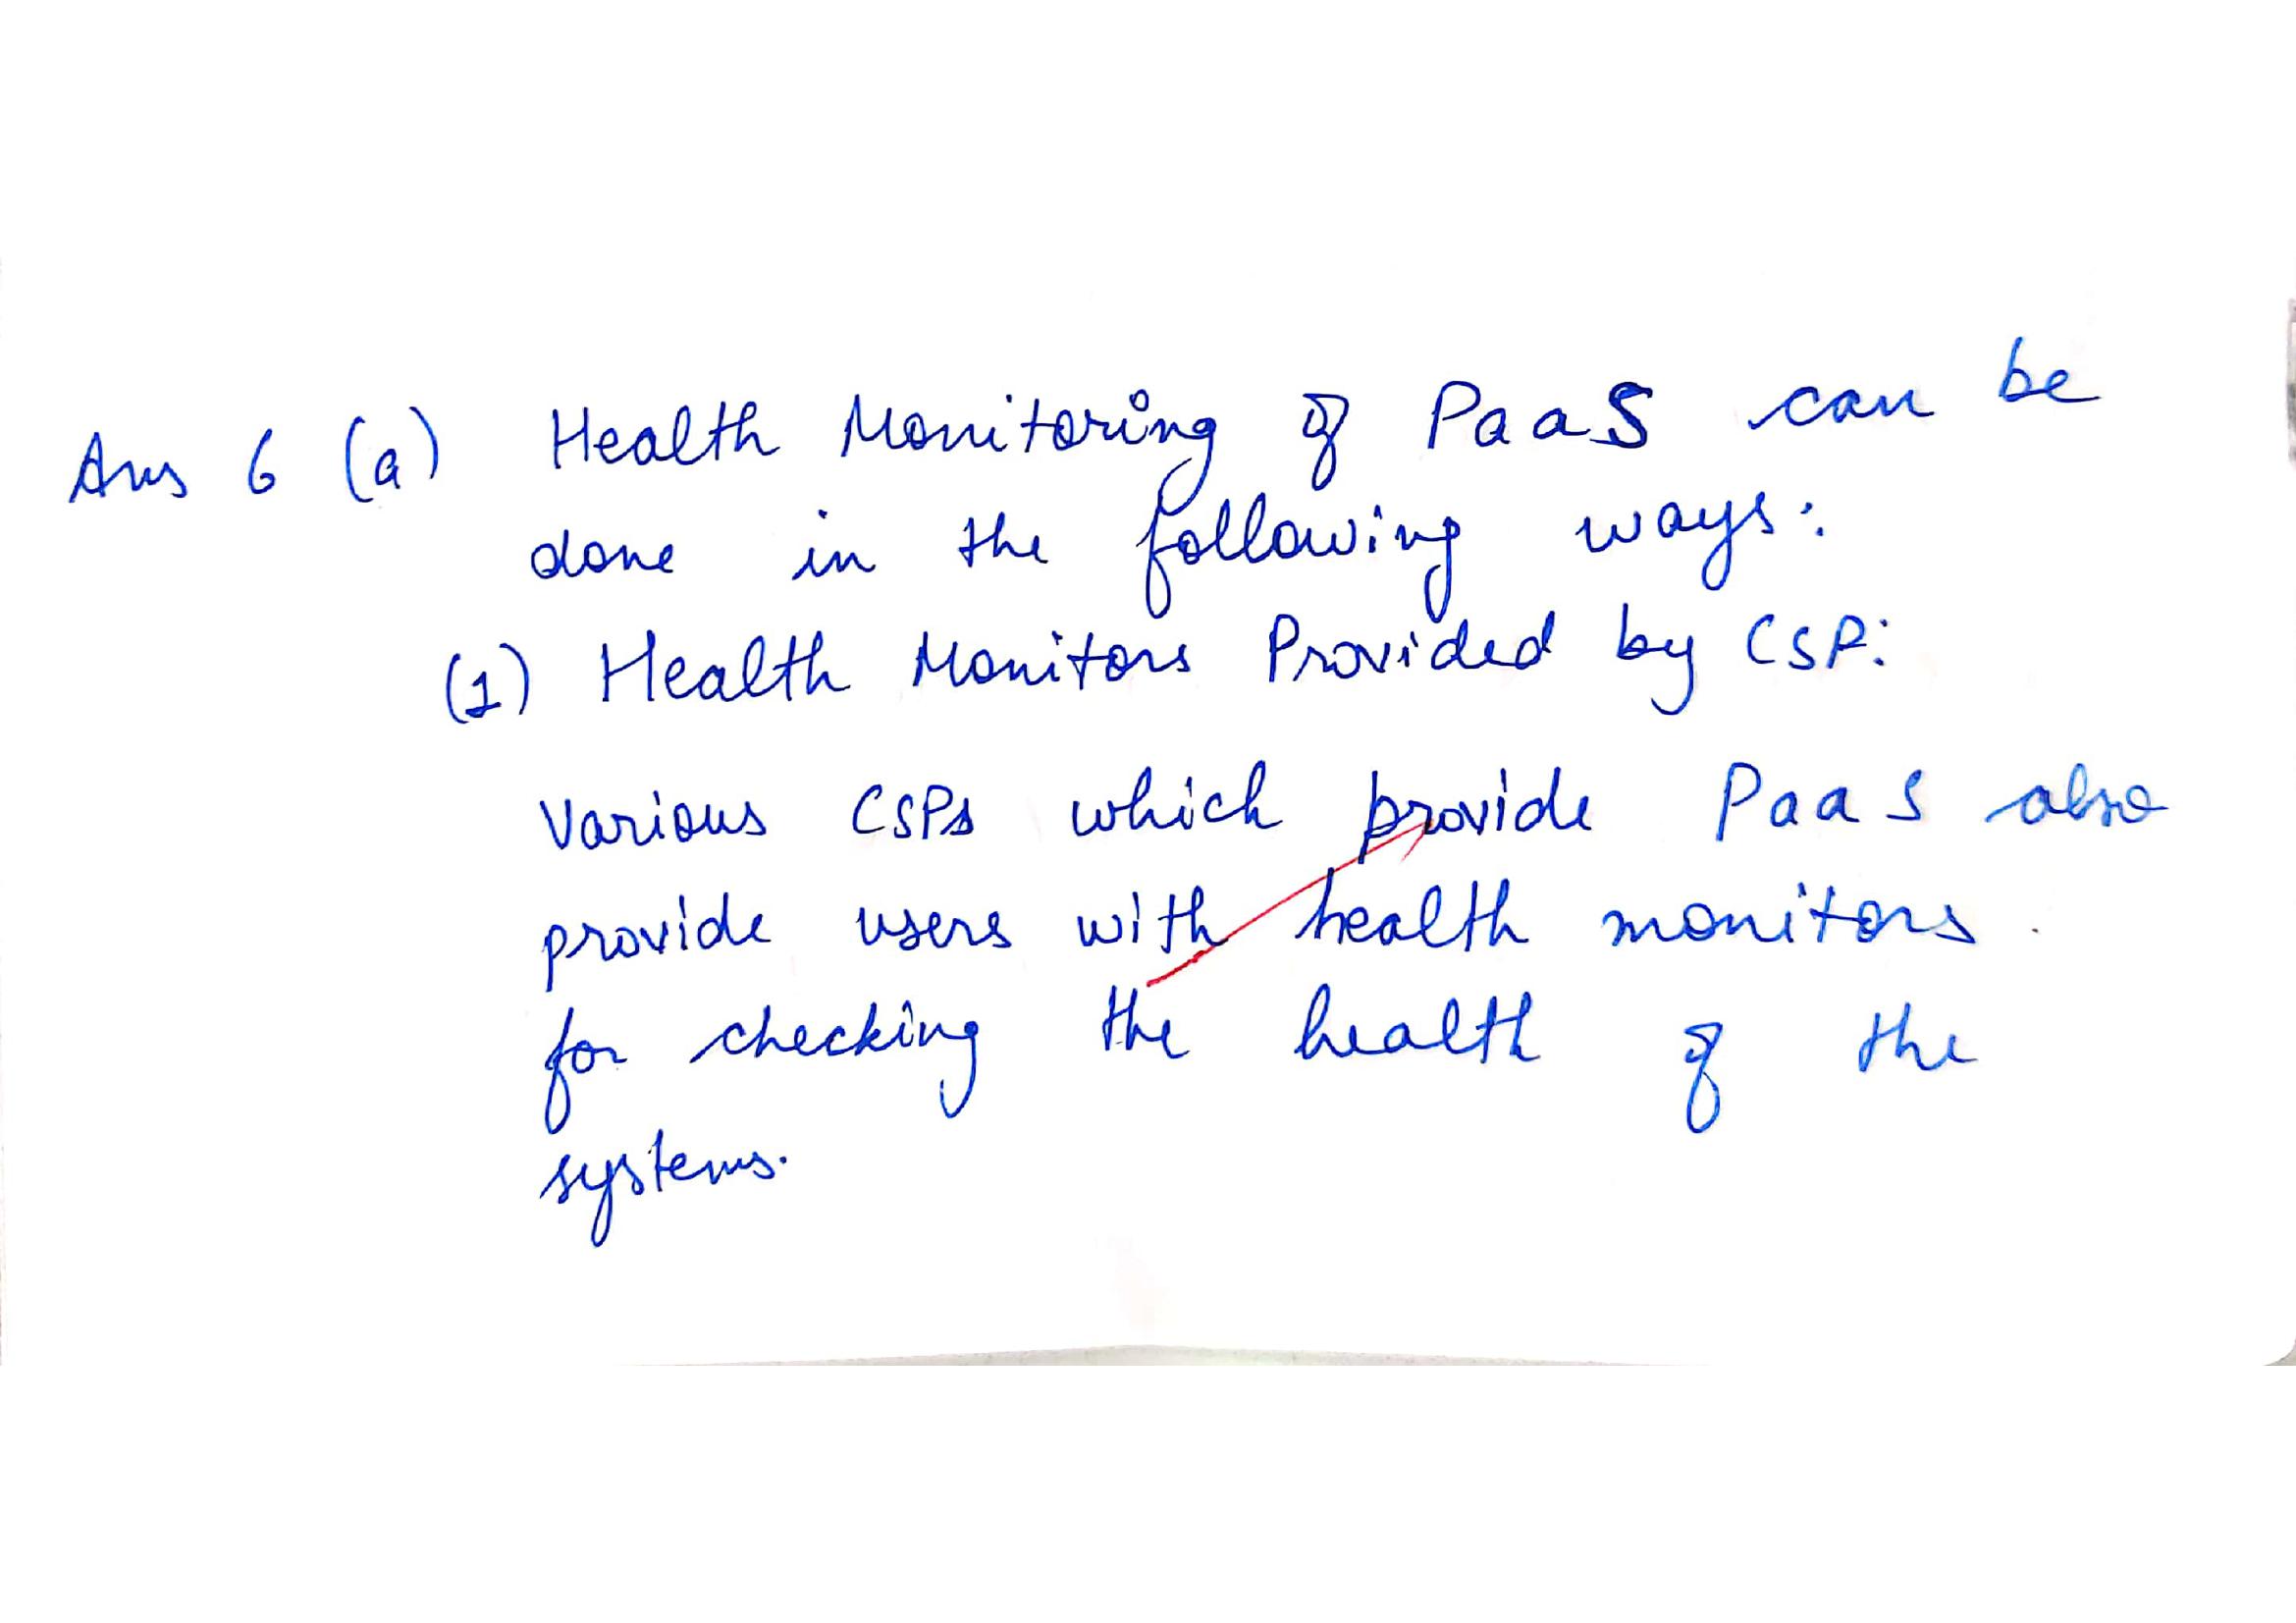 Ans 6 (a) Health Monitoring of PaaS can be
done in the following ways:
(1) Health Monitors Provided by CSP:
Various CSPs which provide PaaS also
provide users with health monitors.
for checking the health of the
systems.